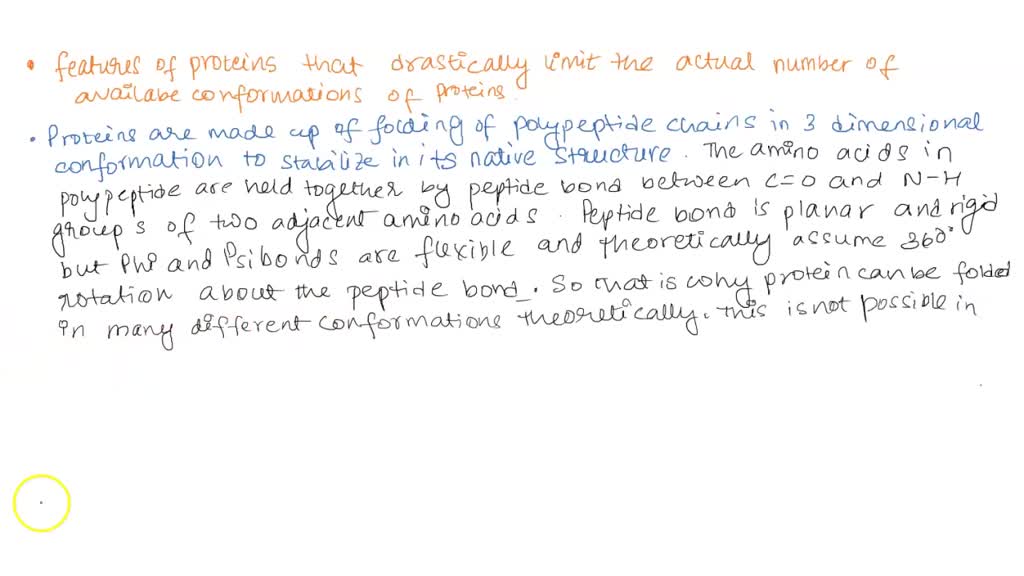 • features of proteins that drastically limit the actual number of
availabe conformations of proteins.
• Proteins are made up of folding of polypeptide chains in 3 dimensional
conformation to stabilize in its native structure. The amino acids in
polypeptide are held together by peptide bond between C=O and N-H
groups of two adjacent amino acids. Peptide bond is planar and rigid
but Phi and Psi bonds are flexible and theoretically assume 360°
rotation about the peptide bond. So that is why protein can be folded
in many different conformations theoretically. This is not possible in